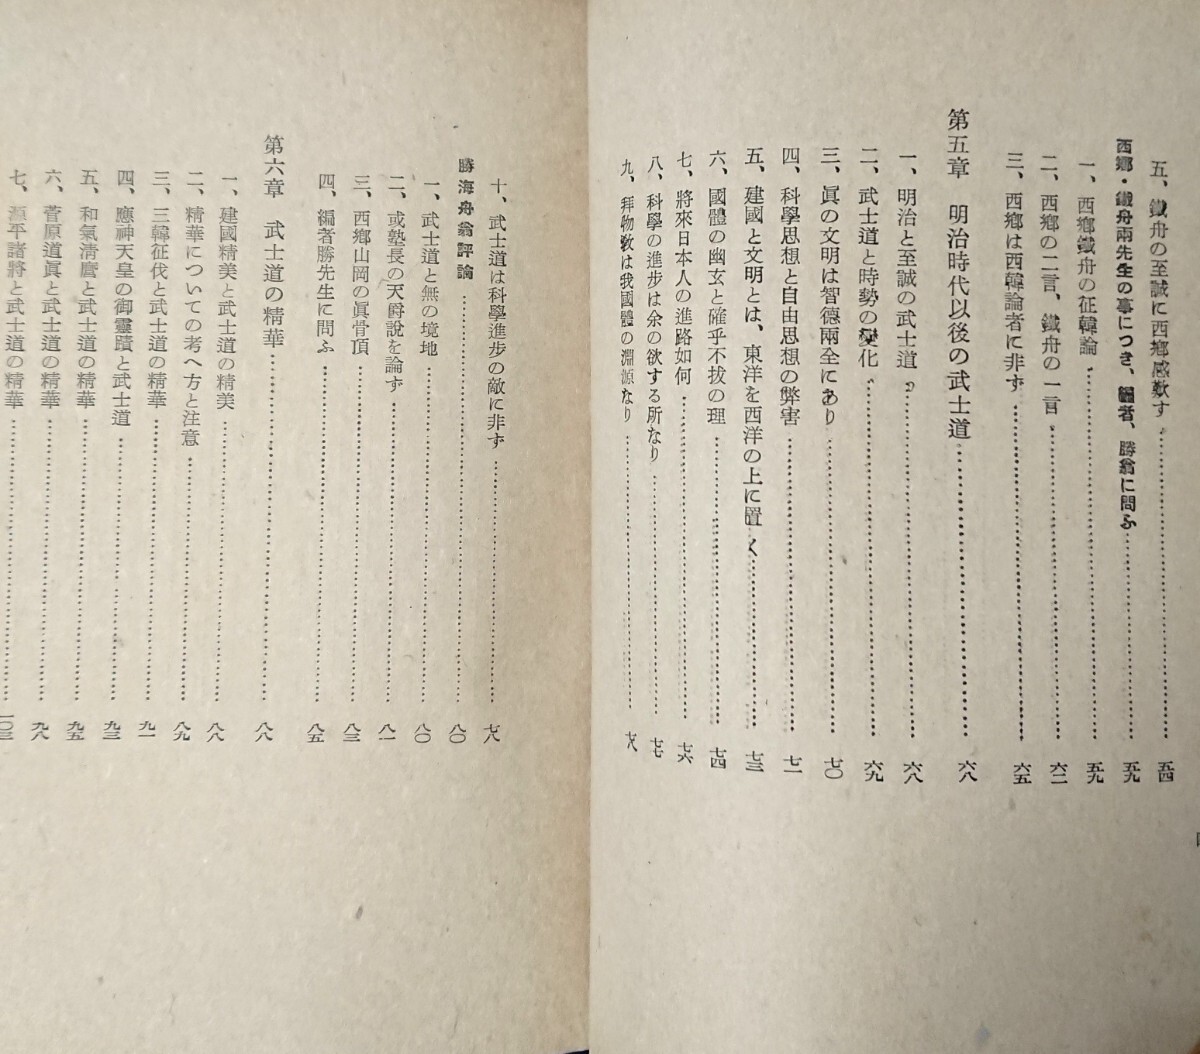 五、鐵舟の至誠に西鄕感歎す…………五四
西鄕・鐵舟兩先生の事につき、編者、勝翁に問ふ…………五九
一、西鄕鐵舟の征韓論…………五九
二、西鄕の二言、鐵舟の一言…………六二
三、西鄕は西韓論者に非ず…………六五
第五章 明治時代以後の武士道…………六八
一、明治と至誠の武士道…………六八
二、武士道と時勢の變化…………六九
三、眞の文明は智德兩全にあり…………七〇
四、科學思想と自由思想の弊害…………七一
五、建國と文明とは、東洋を西洋の上に置く…………七三
六、國體の幽玄と確乎不拔の理…………七四
七、將來日本人の進路如何…………七六
八、科學の進步は余の欲する所なり…………七七
九、拜物敎は我國體の淵源なり…………七八
十、武士道は科學進步の敵に非ず…………七八
勝海舟翁評論…………八〇
一、武士道と無の境地…………八〇
二、或塾長の天爵說を論ず…………八一
三、西鄕山岡の眞骨頂…………八三
四、編者勝先生に問ふ…………八五
第六章 武士道の精華…………八八
一、建國精美と武士道の精美…………八八
二、精華についての考へ方と注意…………八九
三、三韓征伐と武士道の精華…………九一
四、應神天皇の御靈蹟と武士道…………九三
五、和氣淸麿と武士道の精華…………九五
六、菅原道眞と武士道の精華…………九八
七、源平諸將と武士道の精華…………一〇三